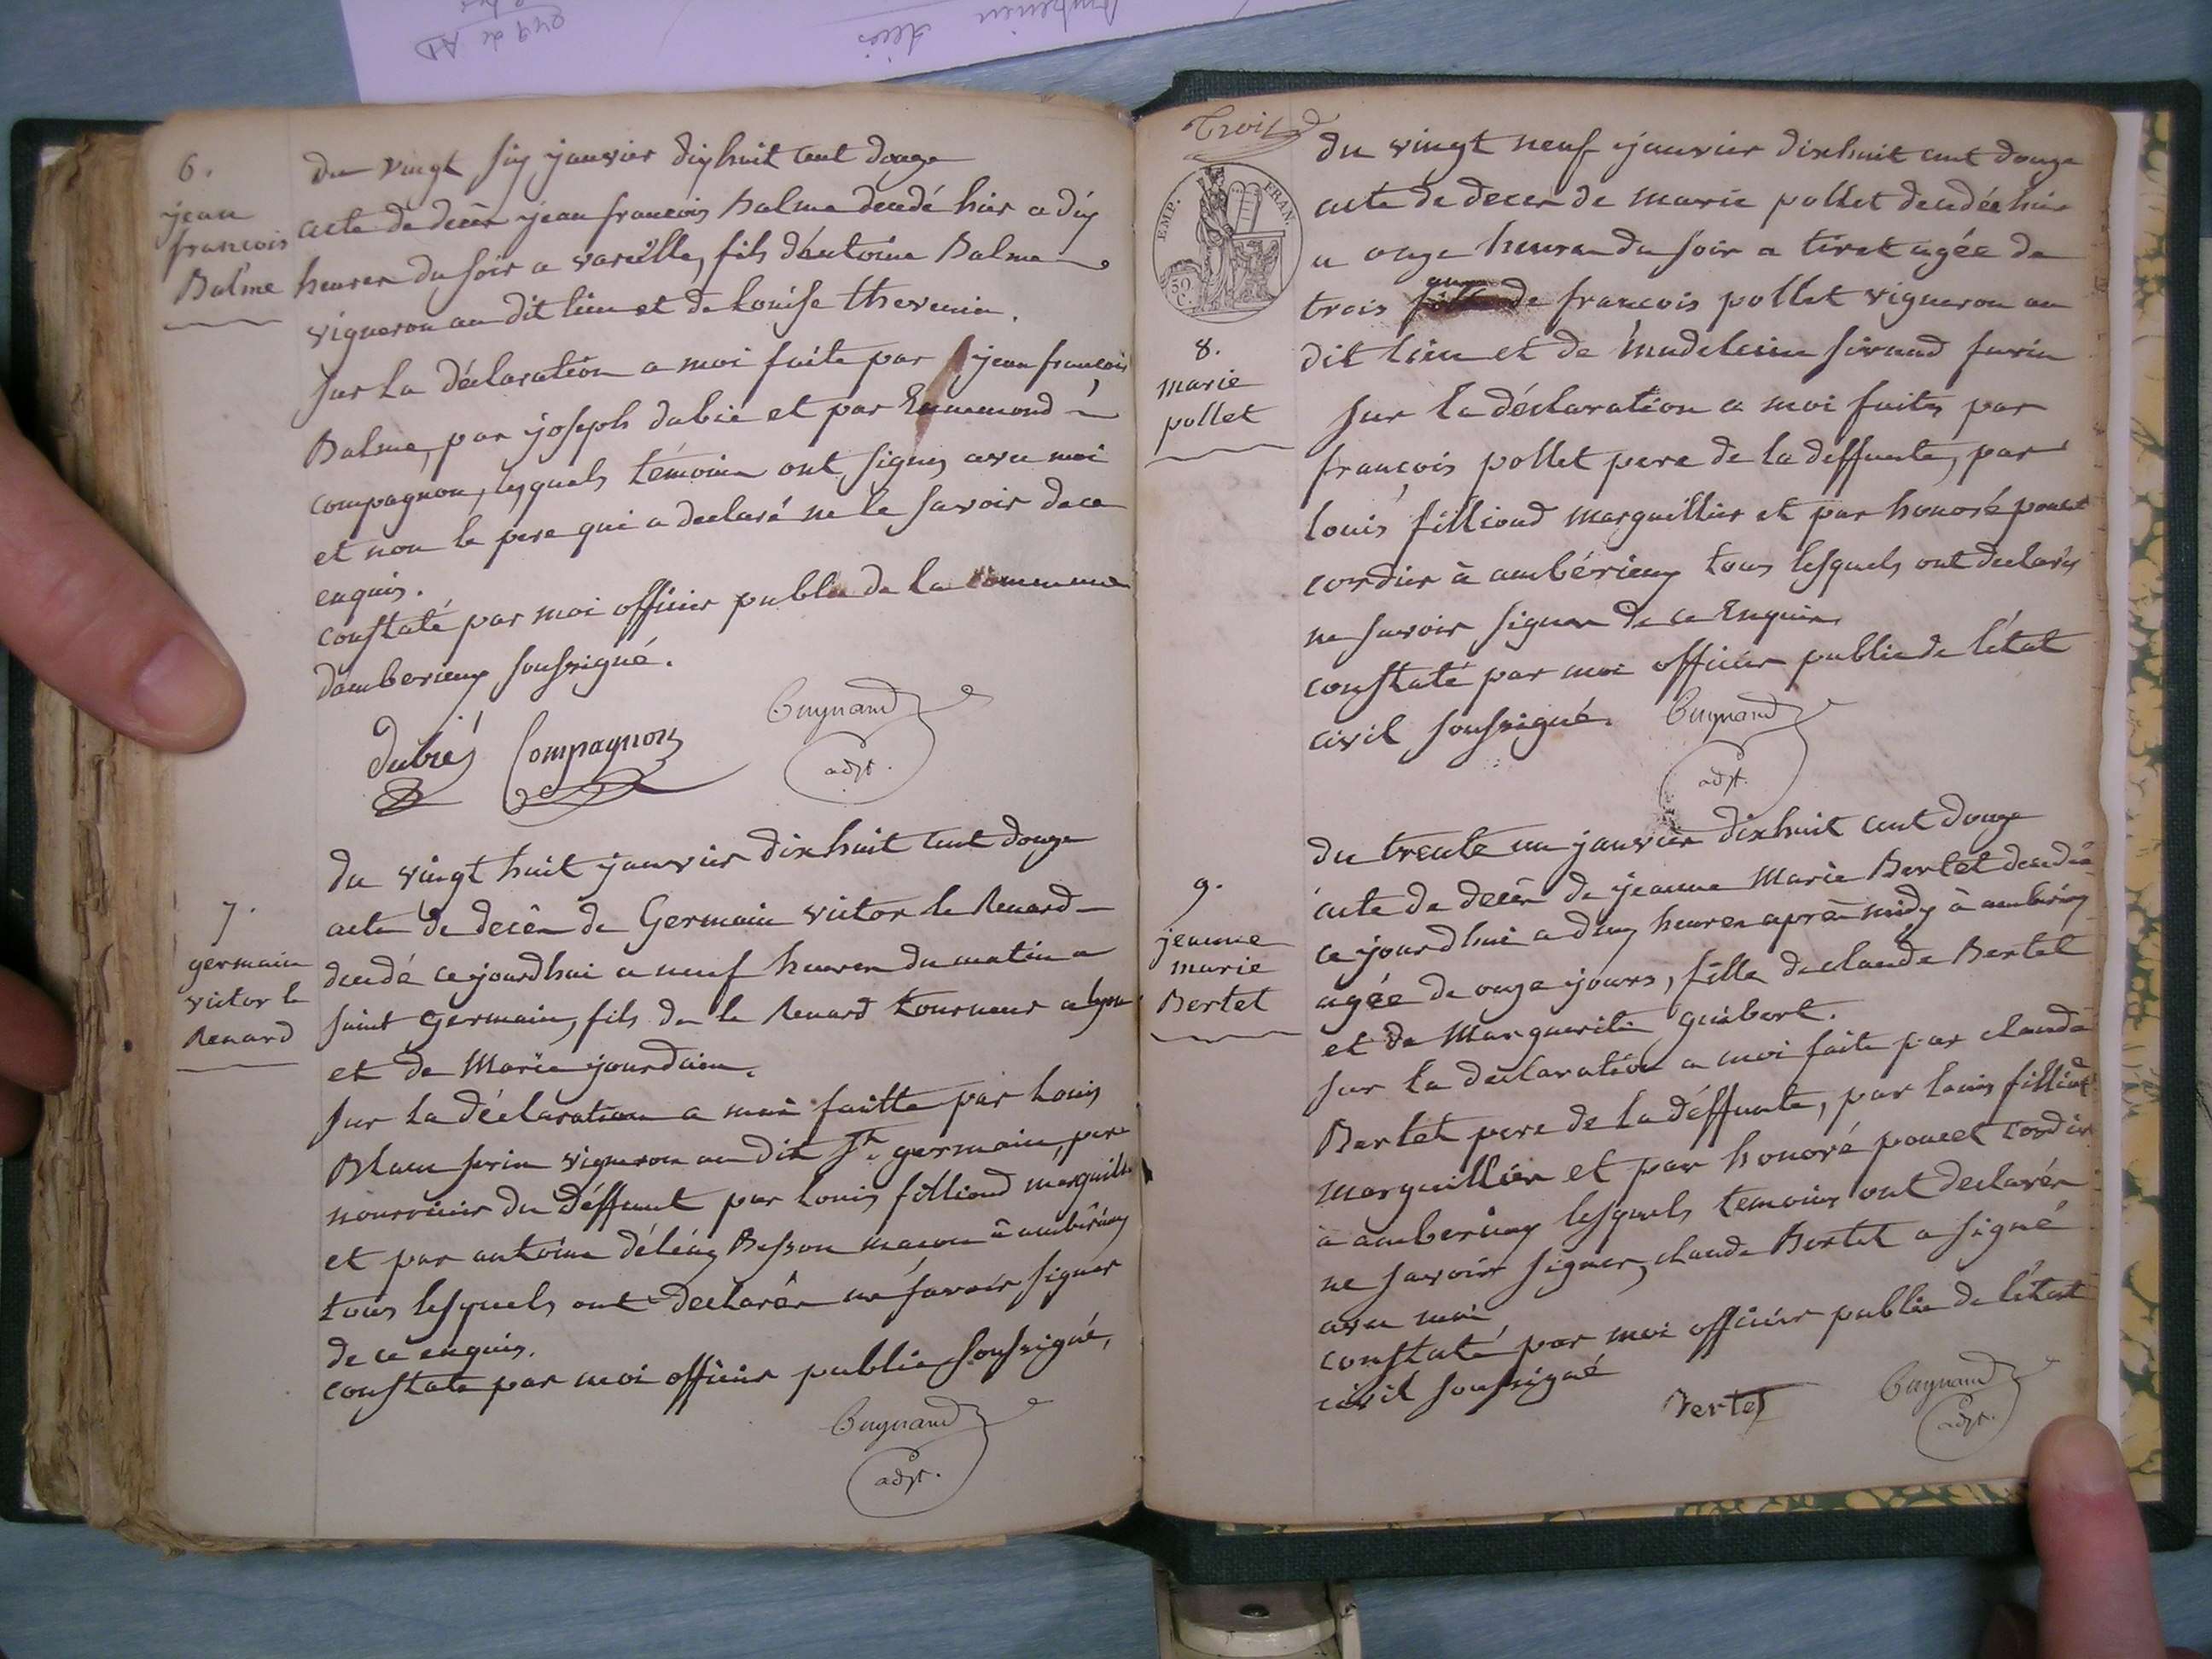 6.
jean
francois
Balme
du vingt six janvier dix huit cent douze
acte de decès jean francois Balme decedé hier a dix
heures du soir a vareille, fils d'antoine Balme
vigneron au dit lieu et de Louise thevenin.
sur la déclaration a moi faite par jean francois
Balme, par joseph dubié et par Ennemond
compagnon, lesquels témoins ont signes avec moi
et non le pere qui a declaré ne le savoir de ce
enquis.
constaté par moi officier public de la commune
d'amberieux soussigné.
dubié Compagnon Cuynand
adjt.
7.
germain
victor le
Renard
du vingt huit janvier dix huit cent douze
acte de decès de Germain victor le Renard
decedé ce jourdhui a neuf heures du matin a
saint Germain, fils de le Renard tourneur a lyon
et de Marie jourdain.
sur la déclaration a moi faitte par Louis
Blanc vigneron au dit St. germain, pere
nourricier du déffunt par Louis filliond marguillier
et par antoine Besson macon à ambérieux
tous lesquels ont declarés ne savoir signer
de ce enquis.
constaté par moi officier public soussigné,
Cuynand
adjt.
Trois
EMP. FRAN.
50 C.
8.
marie
pollet
du vingt neuf janvier dixhuit cent douze
acte de decès de marie pollet decedée hier
a onze heures du soir a tiret agée de
trois ans de francois pollet vigneron au
dit lieu et de Madeleine
sur la déclaration a moi faite, par
francois pollet pere de la deffunte, par
louis filliond marguillier et par honoré poncet
cordier à ambérieux tous lesquels ont declarés
ne savoir signer de ce Enquis,
constaté par moi officier public de l'état
civil soussigné. Cuynand
adjt.
9.
jeanne
marie
Bertet
du trente un janvier dixhuit cent douze
acte de decès de jeanne Marie Bertet decedée
ce jourdhui a deux heures après midy à ambérieux
agée de onze jours, fille de claude Bertet
et de Marguerite guibert.
sur la declaration a moi faite par claude
Bertet pere de la déffunte, par louis filliond
marguillier et par honoré poncet cordier
à amberieux lesquels temoins ont declarés
ne savoir signer, claude Bertet a signé
avec moi
constaté par moi officier public de l'état
civil soussigné
Bertet Cuynand
adjt.